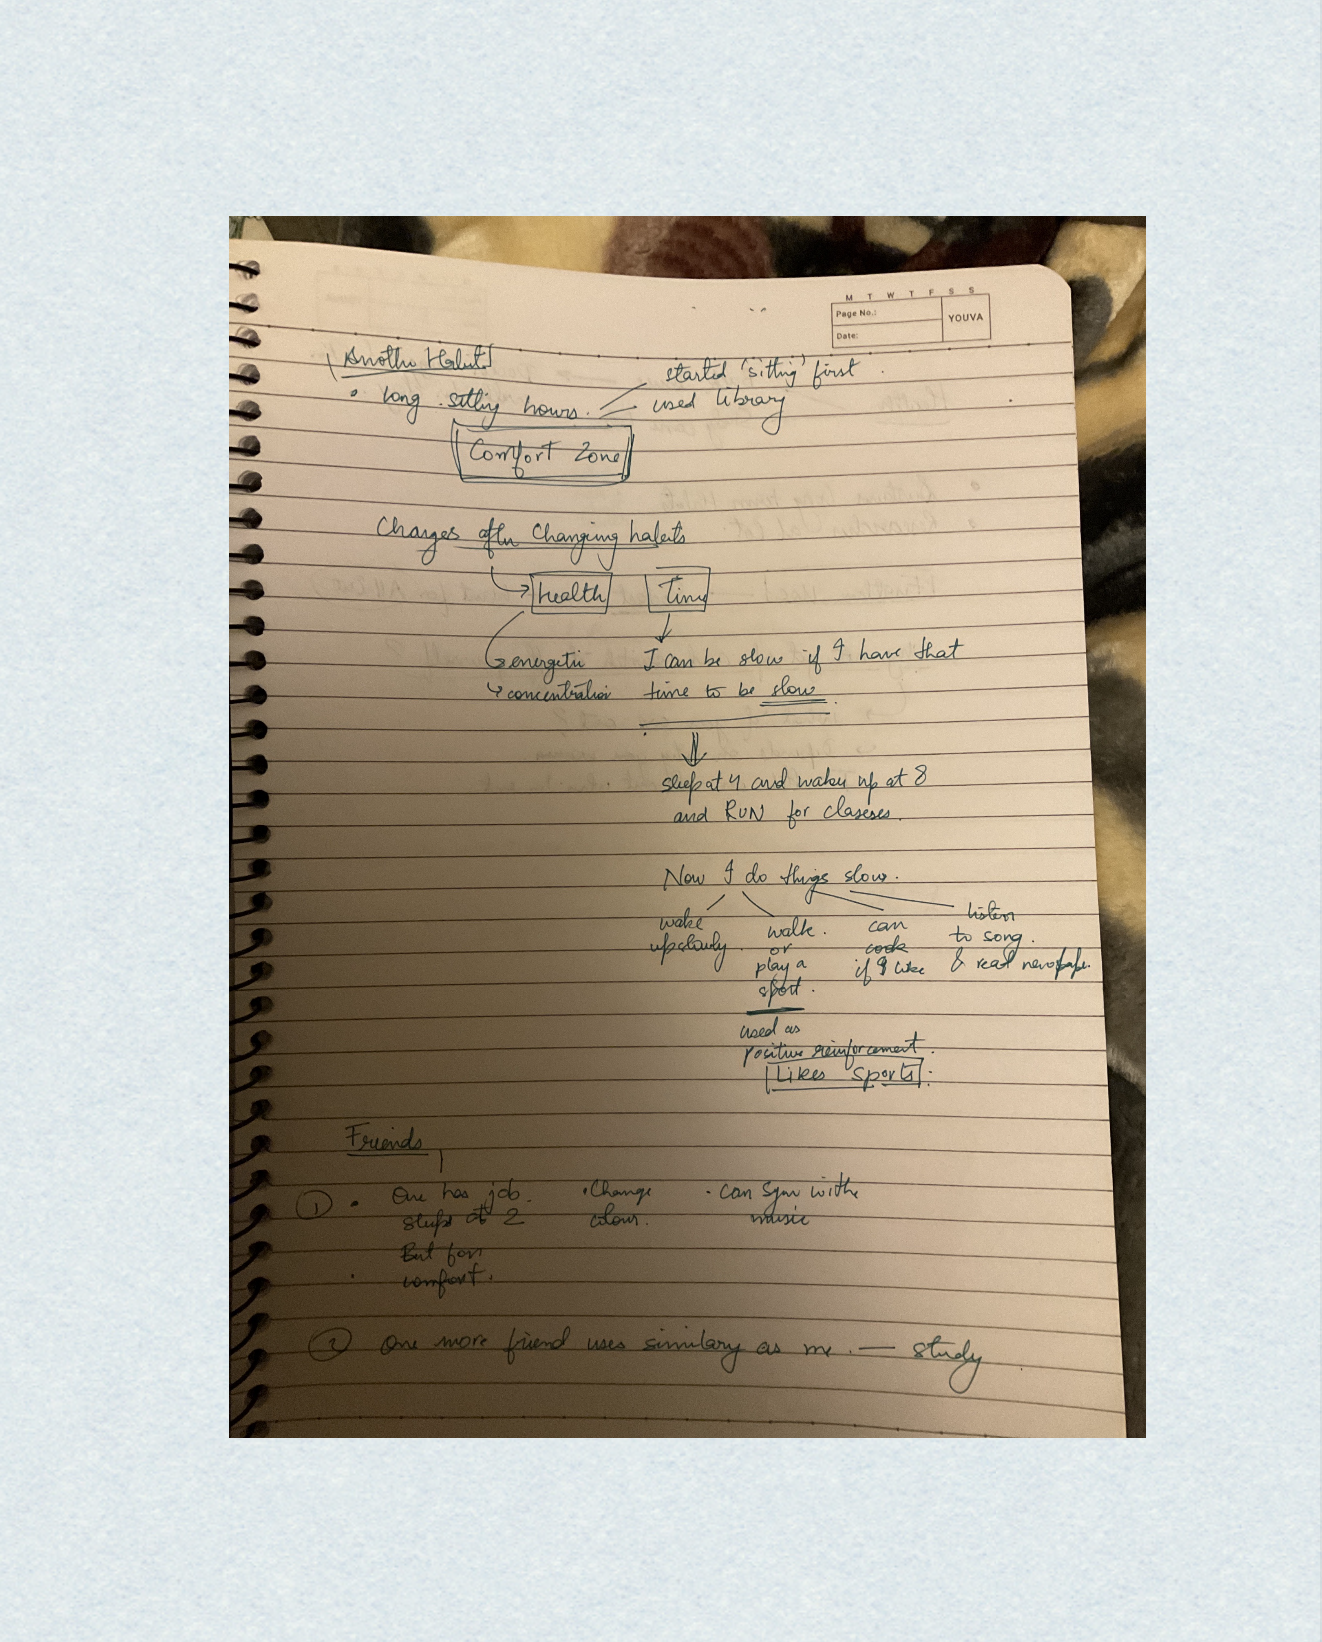 M T W T F S S
Page No.:
YOUVA
Date:
Another Habit
• long sitting hours.
started 'sitting' first
used library
Comfort Zone
Changes after Changing habits
health
Time
energetic
concentration
I can be slow if I have that
time to be slow
sleep at 4 and wakeup at 8
and RUN for classes.
Now I do things slow.
wake
up slowly.
walk.
or
play a
sport.
can
cook
if I like
listen
to song.
& read newspaper.
used as
positive reinforcement.
Likes sports
Friends
① • One has job.
sleeps at 2
But for
comfort.
• Change
colour.
• can sync with
music
② One more friend uses similary as me. — study